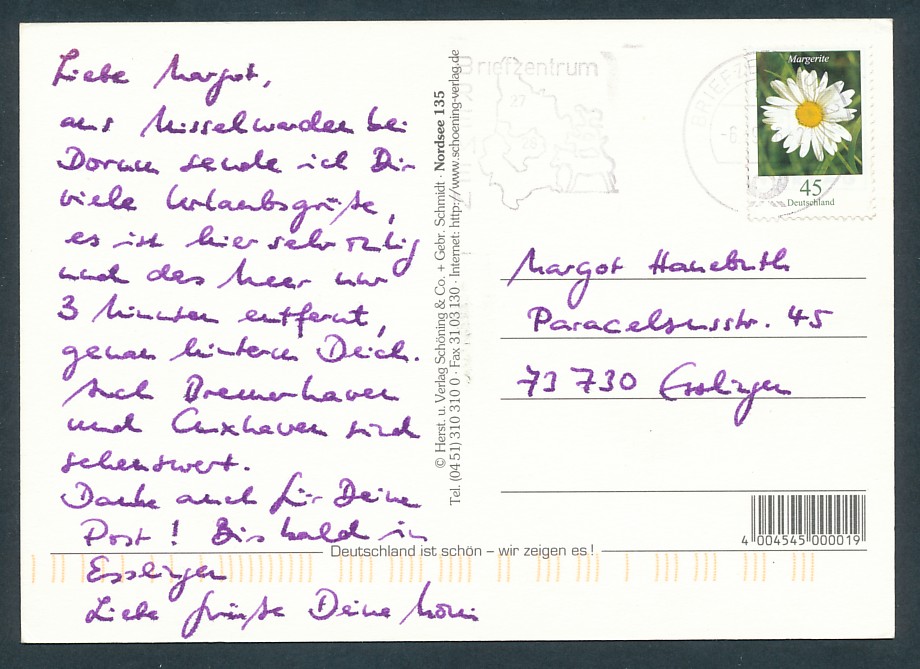 Liebe Margot,
aus Misselwarden bei
Dorum sende ich Dir
viele Urlaubsgrüße,
es ist hier sehr ruhig
und das Meer nur
3 Minuten entfernt,
genau hinterm Deich.
Auch Bremerhaven
und Cuxhaven sind
sehenswert.
Danke auch für Deine
Post! Bis bald in
Esslingen
Liebe Grüße Deine
© Herst. u. Verlag Schöning & Co. + Gebr. Schmidt · Nordsee 135
Tel. (04 51) 310 310 0 · Fax 31 03 130 · Internet: http://www.schoening-verlag.de
Briefzentrum
27
28
BRIEFZE
Margerite
45
Deutschland
Margot Hanebuth
Paracelsusstr. 45
73 730 Esslingen
4 004545 000019
Deutschland ist schön – wir zeigen es!